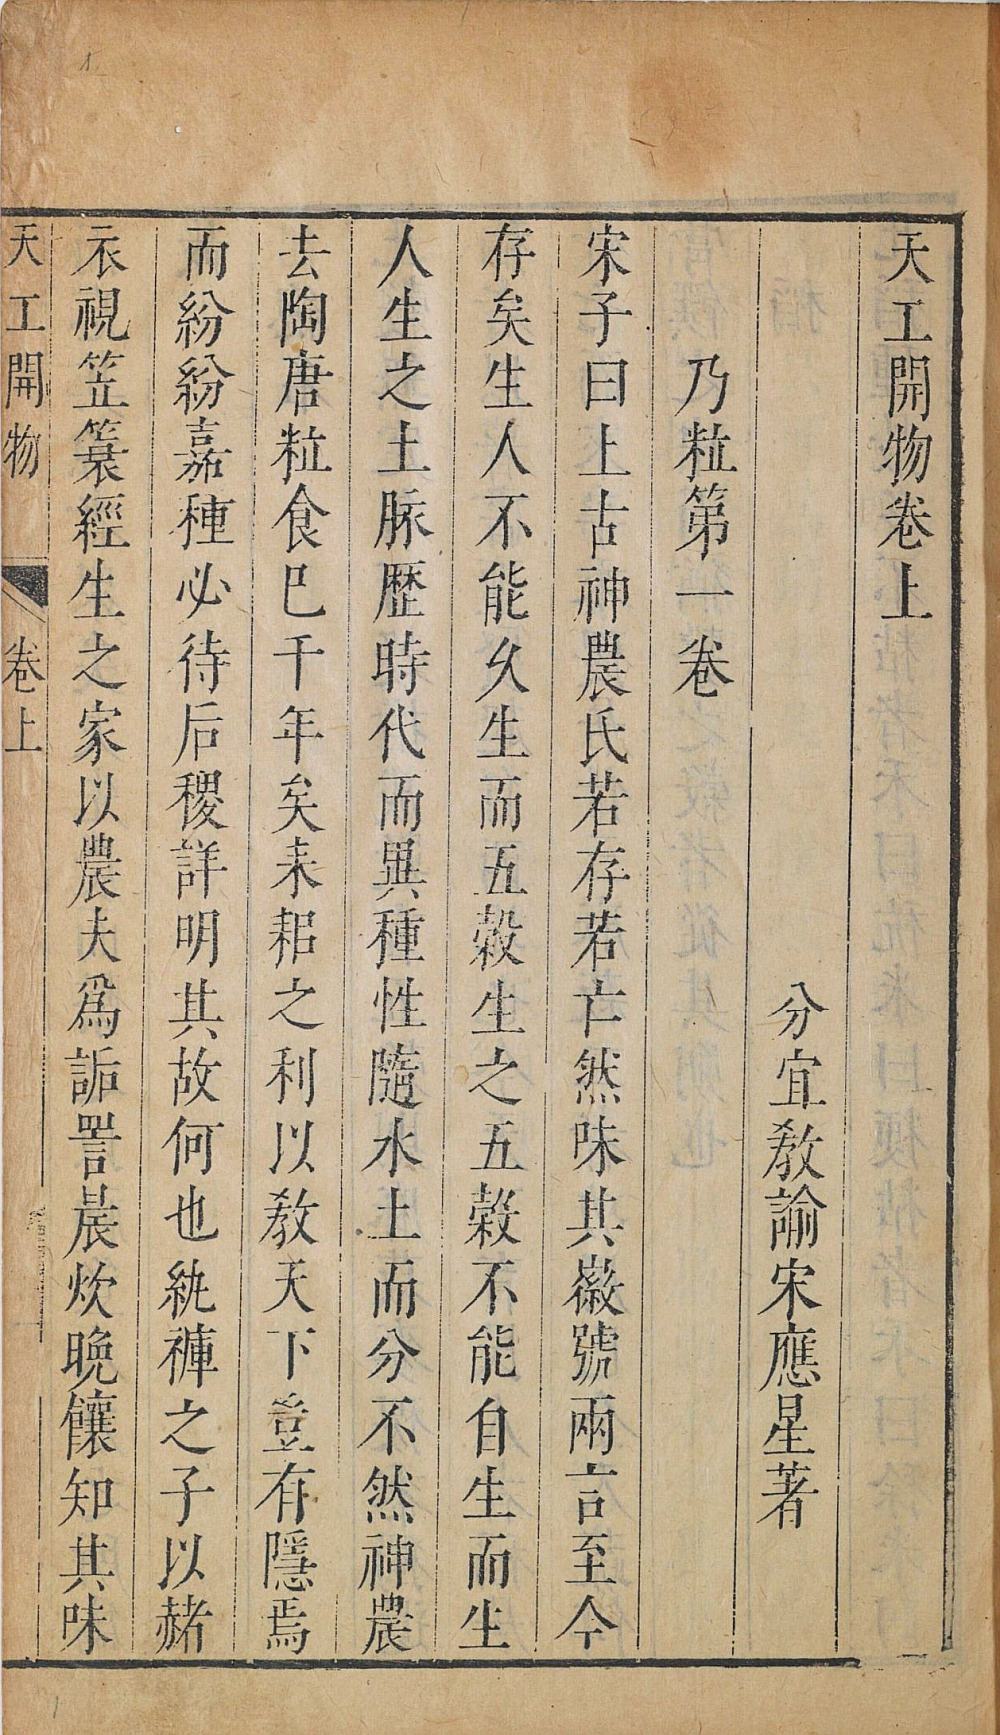 天工開物卷上
分宜敎諭宋應星著
乃粒第一卷
宋子曰上古神農氏若存若亡然味其徽號兩言至今
存矣生人不能久生而五穀生之五穀不能自生而生
人生之土脉歷時代而異種性隨水土而分不然神農
去陶唐粒食已千年矣耒耜之利以敎天下豈有隱焉
而紛紛嘉種必待后稷詳明其故何也紈褲之子以赭
衣視笠簑經生之家以農夫爲詬詈晨炊晚饟知其味
天工開物 卷上